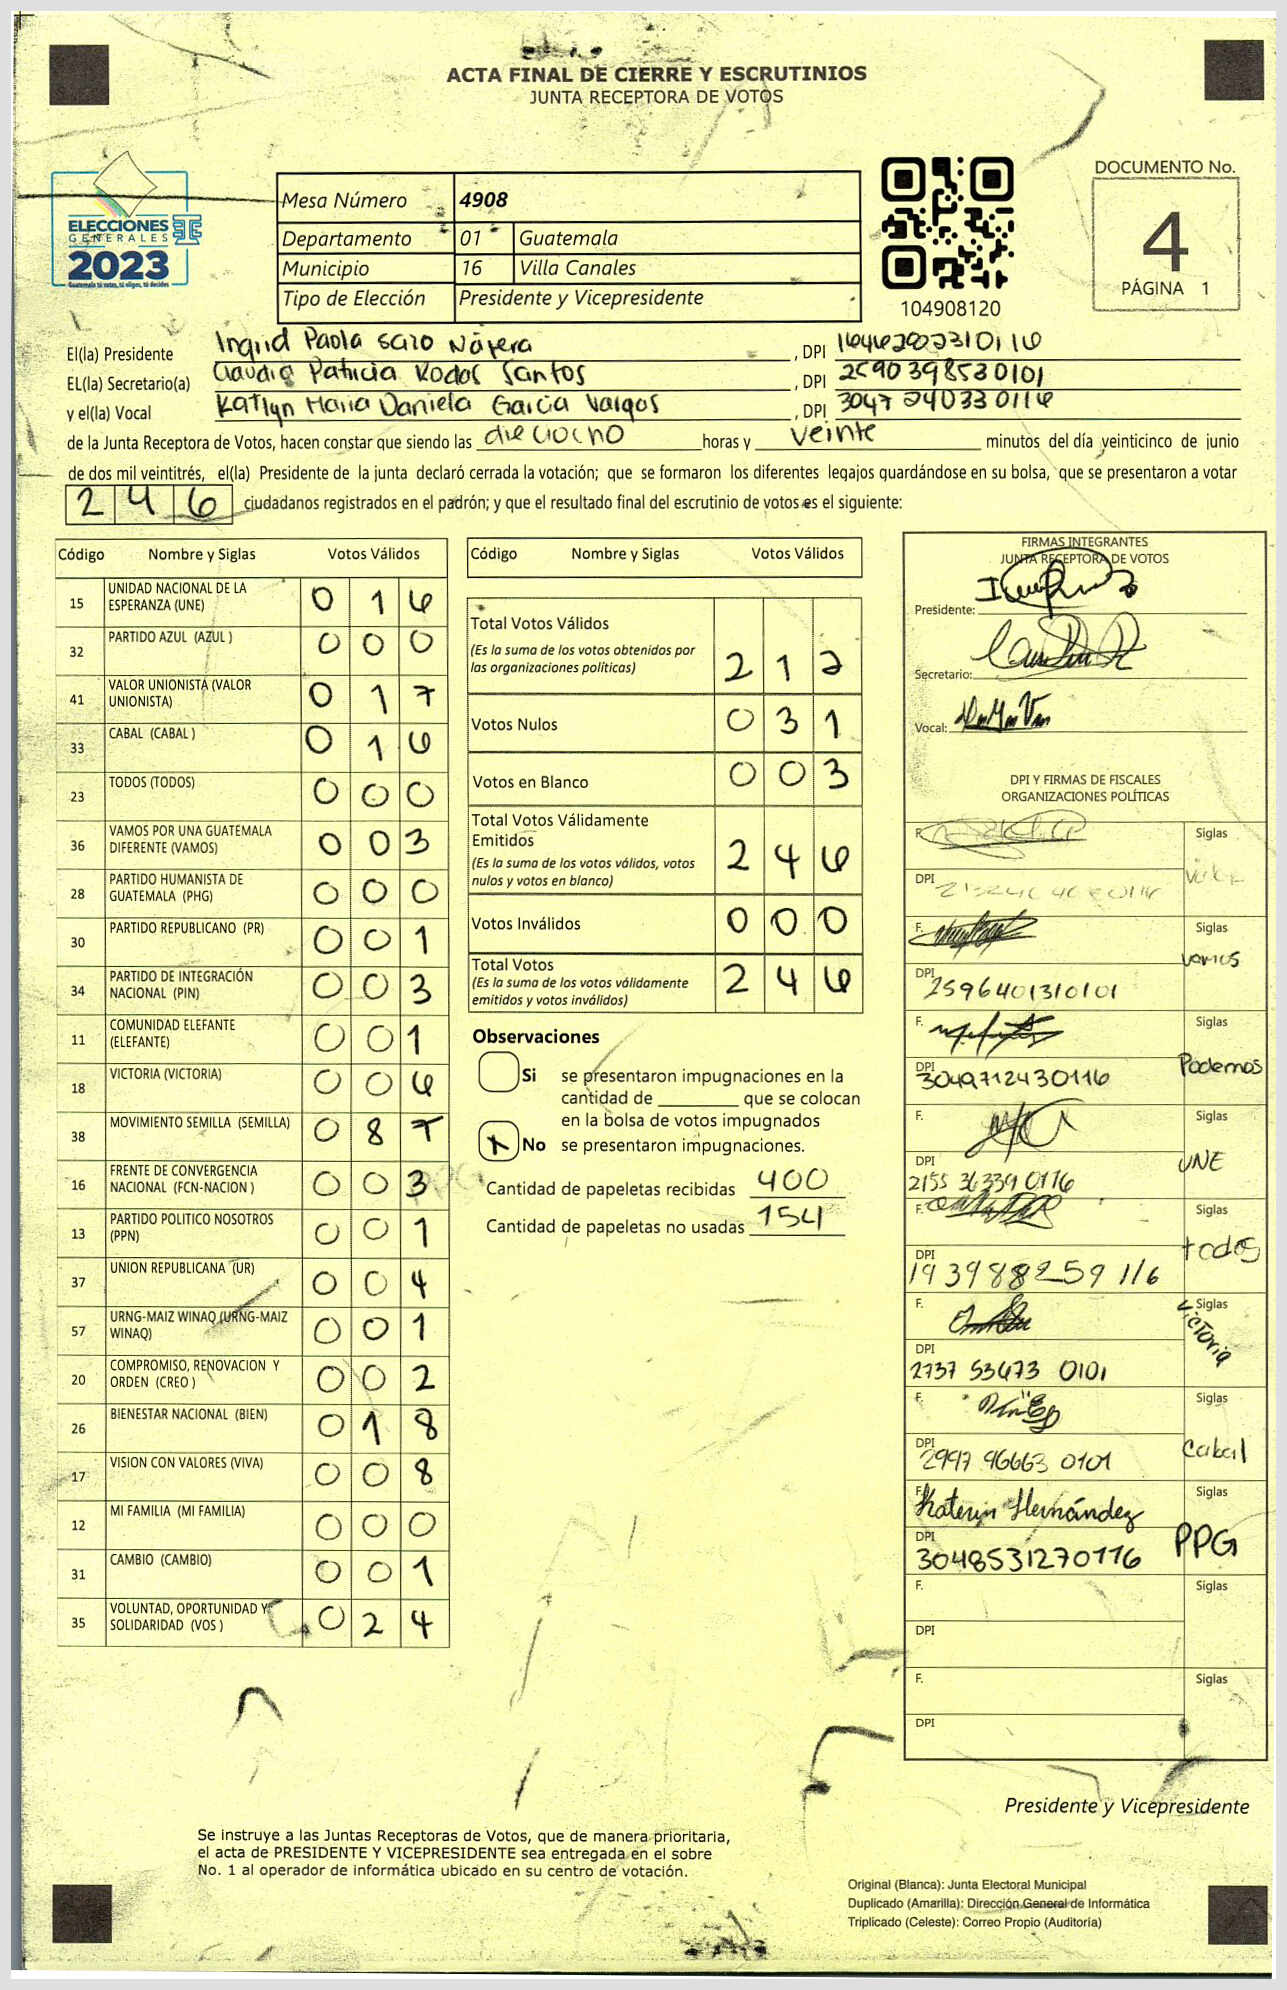 ACTA FINAL DE CIERRE Y ESCRUTINIOS
JUNTA RECEPTORA DE VOTOS
ELECCIONES
GENERALES
2023
Guatemala tú votas, tú eliges, tú decides
Mesa Número 4908
Departamento 01 Guatemala
Municipio 16 Villa Canales
Tipo de Elección Presidente y Vicepresidente
104908120
DOCUMENTO No.
4
PÁGINA 1
El(la) Presidente Ingrid Paola Nájera, DPI
EL(la) Secretario(a) Claudia Patricia Rodas Santos, DPI 2590398530101
y el(la) Vocal Katlyn Maria Daniela Garcia Vargas, DPI 3047 240330116
de la Junta Receptora de Votos, hacen constar que siendo las dieciocho horas y veinte minutos del día veinticinco de junio
de dos mil veintitrés, el(la) Presidente de la junta declaró cerrada la votación; que se formaron los diferentes legajos guardándose en su bolsa, que se presentaron a votar
246 ciudadanos registrados en el padrón; y que el resultado final del escrutinio de votos es el siguiente:
Código Nombre y Siglas Votos Válidos
15 UNIDAD NACIONAL DE LA ESPERANZA (UNE) 016
32 PARTIDO AZUL (AZUL ) 000
41 VALOR UNIONISTA (VALOR UNIONISTA) 017
33 CABAL (CABAL ) 016
23 TODOS (TODOS) 000
36 VAMOS POR UNA GUATEMALA DIFERENTE (VAMOS) 003
28 PARTIDO HUMANISTA DE GUATEMALA (PHG) 000
30 PARTIDO REPUBLICANO (PR) 001
34 PARTIDO DE INTEGRACIÓN NACIONAL (PIN) 003
11 COMUNIDAD ELEFANTE (ELEFANTE) 001
18 VICTORIA (VICTORIA) 006
38 MOVIMIENTO SEMILLA (SEMILLA) 087
16 FRENTE DE CONVERGENCIA NACIONAL (FCN-NACION ) 003
13 PARTIDO POLITICO NOSOTROS (PPN) 001
37 UNION REPUBLICANA (UR) 004
57 URNG-MAIZ WINAQ (URNG-MAIZ WINAQ) 001
20 COMPROMISO, RENOVACION Y ORDEN (CREO ) 002
26 BIENESTAR NACIONAL (BIEN) 018
17 VISION CON VALORES (VIVA) 008
12 MI FAMILIA (MI FAMILIA) 000
31 CAMBIO (CAMBIO) 001
35 VOLUNTAD, OPORTUNIDAD Y SOLIDARIDAD (VOS ) 024
Código Nombre y Siglas Votos Válidos
Total Votos Válidos 212
(Es la suma de los votos obtenidos por
las organizaciones políticas)
Votos Nulos 031
Votos en Blanco 003
Total Votos Válidamente
Emitidos 246
(Es la suma de los votos válidos, votos
nulos y votos en blanco)
Votos Inválidos 000
Total Votos 246
(Es la suma de los votos válidamente
emitidos y votos inválidos)
Observaciones
Si se presentaron impugnaciones en la
cantidad de ________ que se colocan
en la bolsa de votos impugnados
X No se presentaron impugnaciones.
Cantidad de papeletas recibidas 400
Cantidad de papeletas no usadas 154
FIRMAS INTEGRANTES
JUNTA RECEPTORA DE VOTOS
Presidente:
Secretario:
Vocal:
DPI Y FIRMAS DE FISCALES
ORGANIZACIONES POLÍTICAS
F. Siglas
DPI
F. Siglas
vamos
DPI 2596401310101
F. Siglas
Podemos
DPI 3049712430116
F. Siglas
UNE
DPI 2155 36339 0116
F. Siglas
todos
DPI 193988259 116
F. Siglas
Victoria
DPI 2737 53473 0101
F. Siglas
Cabal
DPI 2997 96663 0101
F. Katerin Hernández Siglas
PPG
DPI 3048531270116
F. Siglas
DPI
F. Siglas
DPI
Presidente y Vicepresidente
Se instruye a las Juntas Receptoras de Votos, que de manera prioritaria,
el acta de PRESIDENTE Y VICEPRESIDENTE sea entregada en el sobre
No. 1 al operador de informática ubicado en su centro de votación.
Original (Blanca): Junta Electoral Municipal
Duplicado (Amarilla): Dirección General de Informática
Triplicado (Celeste): Correo Propio (Auditoría)